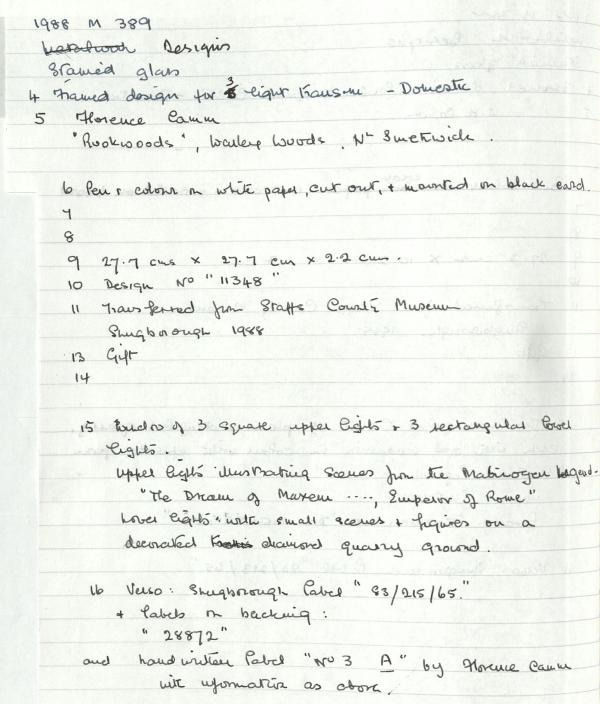 1988 M 389
Designs
Stained glass
4 Framed design for 3 light transom - Domestic
5 Florence Camm
"Rookwoods", Warley Woods, Nr Smethwick.
6 Pen & colour on white paper, cut out, & mounted on black card.
7
8
9 27.7 cms x 27.7 cm x 2.2 cms.
10 Design No "11348"
11 Transferred from Staffs County Museum
Shugborough 1988
13 Gift
14
15 of 3 square upper lights & 3 rectangular lower
lights.
Upper lights illustrating scenes from the Mabinogen legend.
"The Dream of Maxem ...., Emperor of Rome"
Lower lights with small scenes & figures on a
decorated diamond quarry ground.
16 Verso: Shugborough label "83/215/65."
& labels on backing:
"28872"
and handwritten label "No 3 A" by Florence Camm
with information as above.